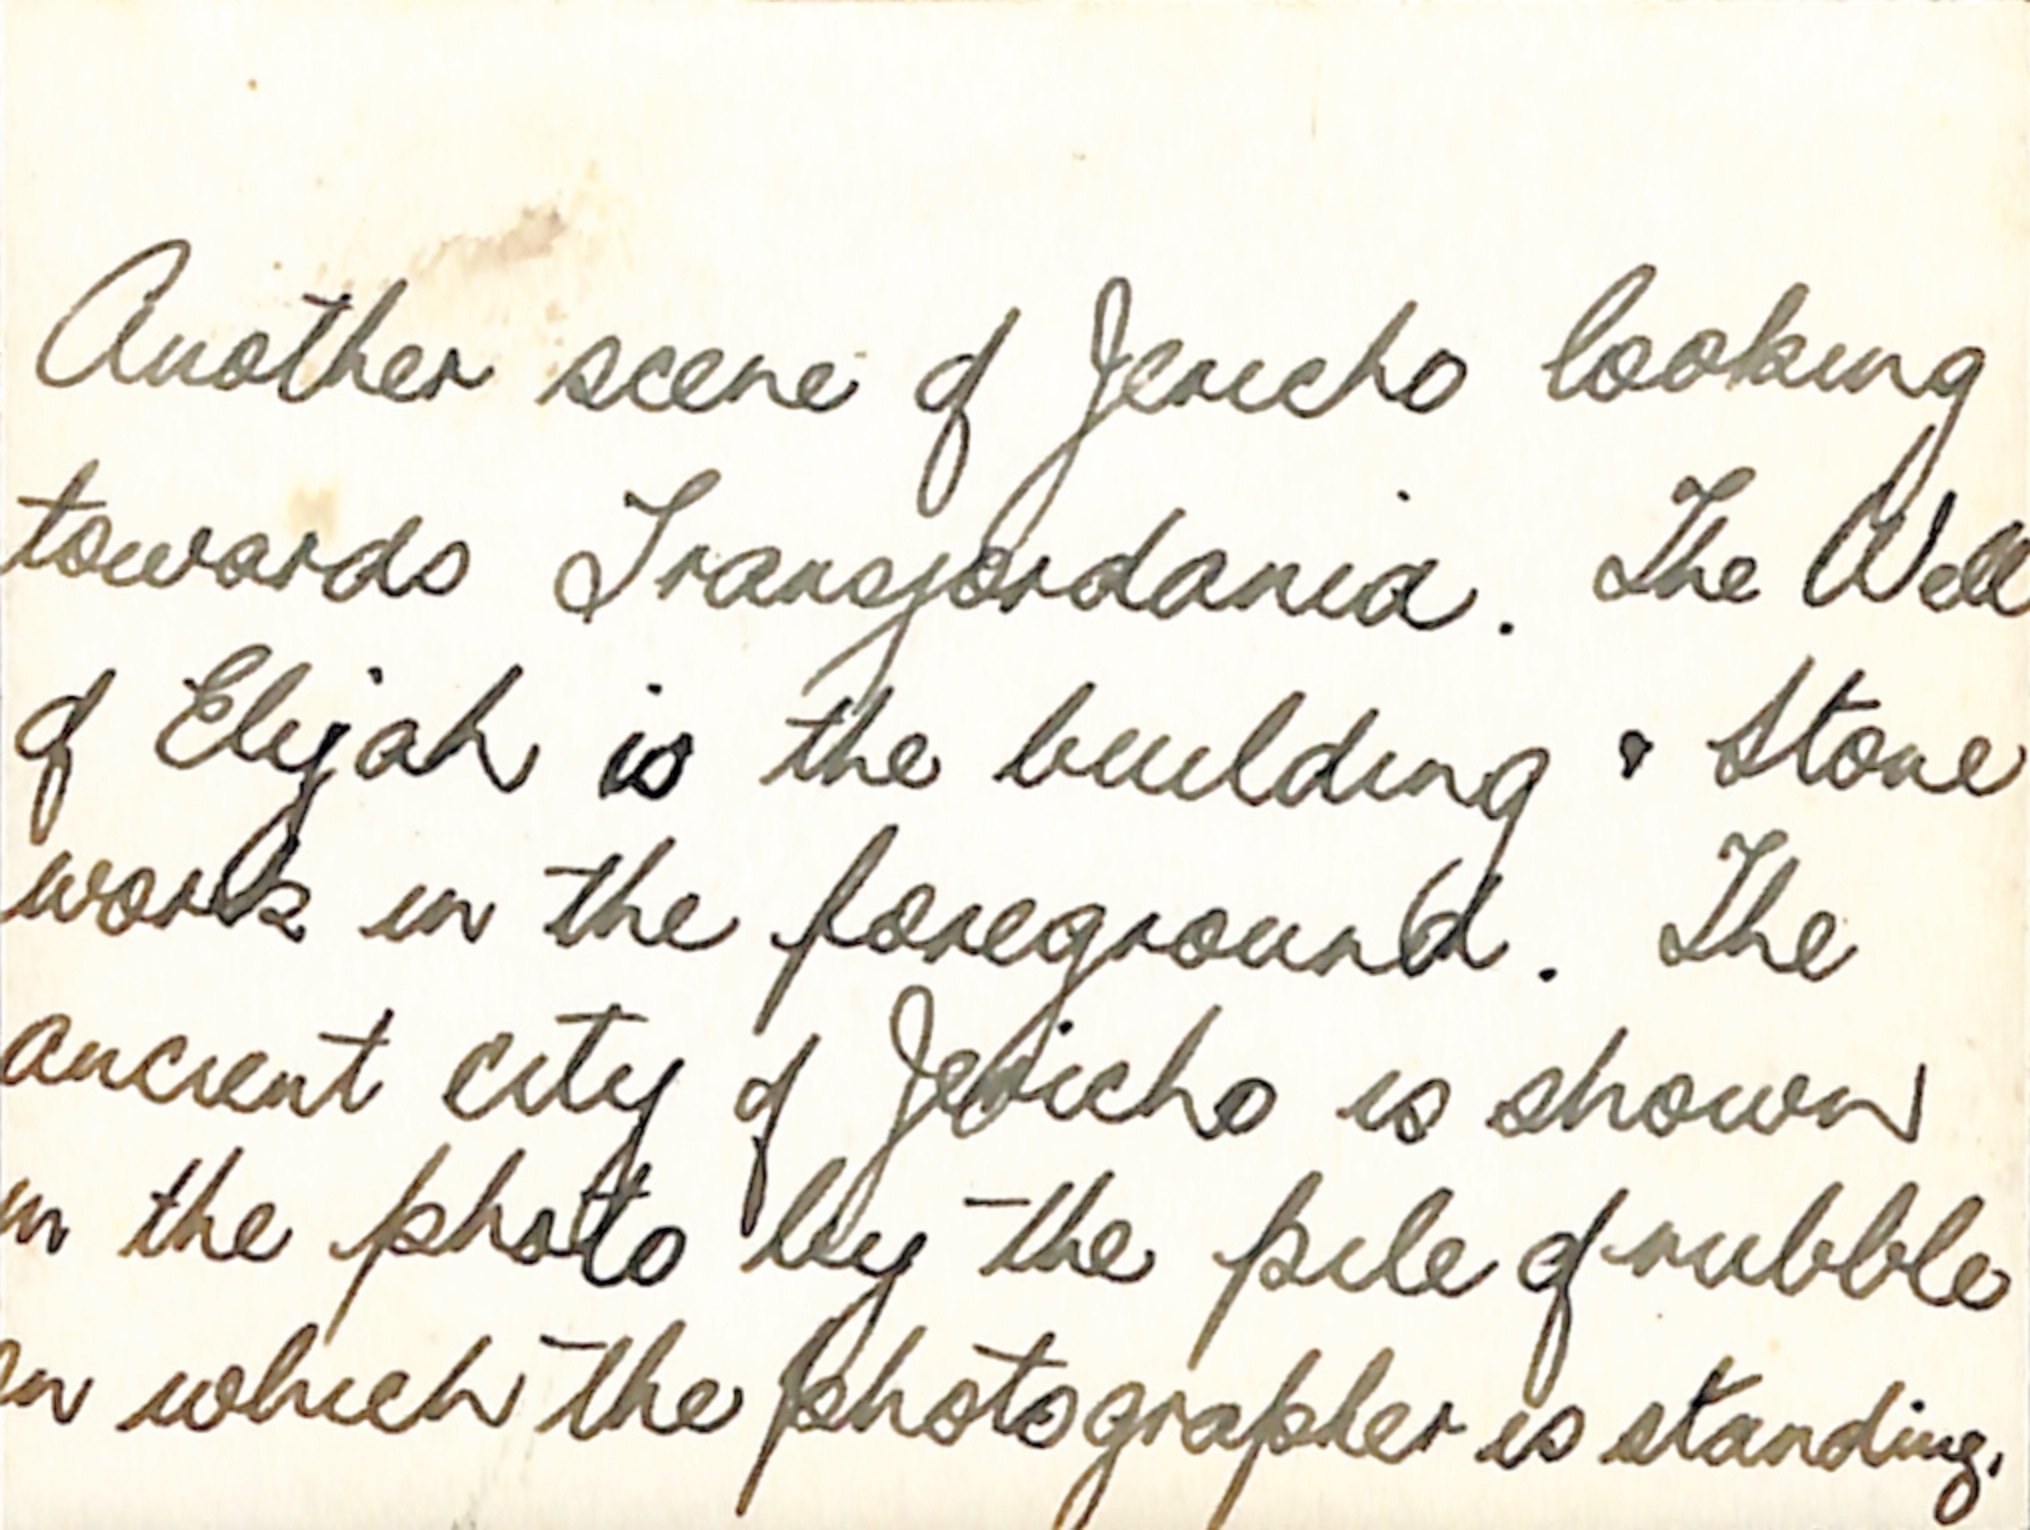 Another scene of Jericho looking
towards Transjordania. The Well
of Elijah is the building & Stone
work in the foreground. The
ancient city of Jericho is shown
in the photo by the pile of rubble
on which the photographer is standing.